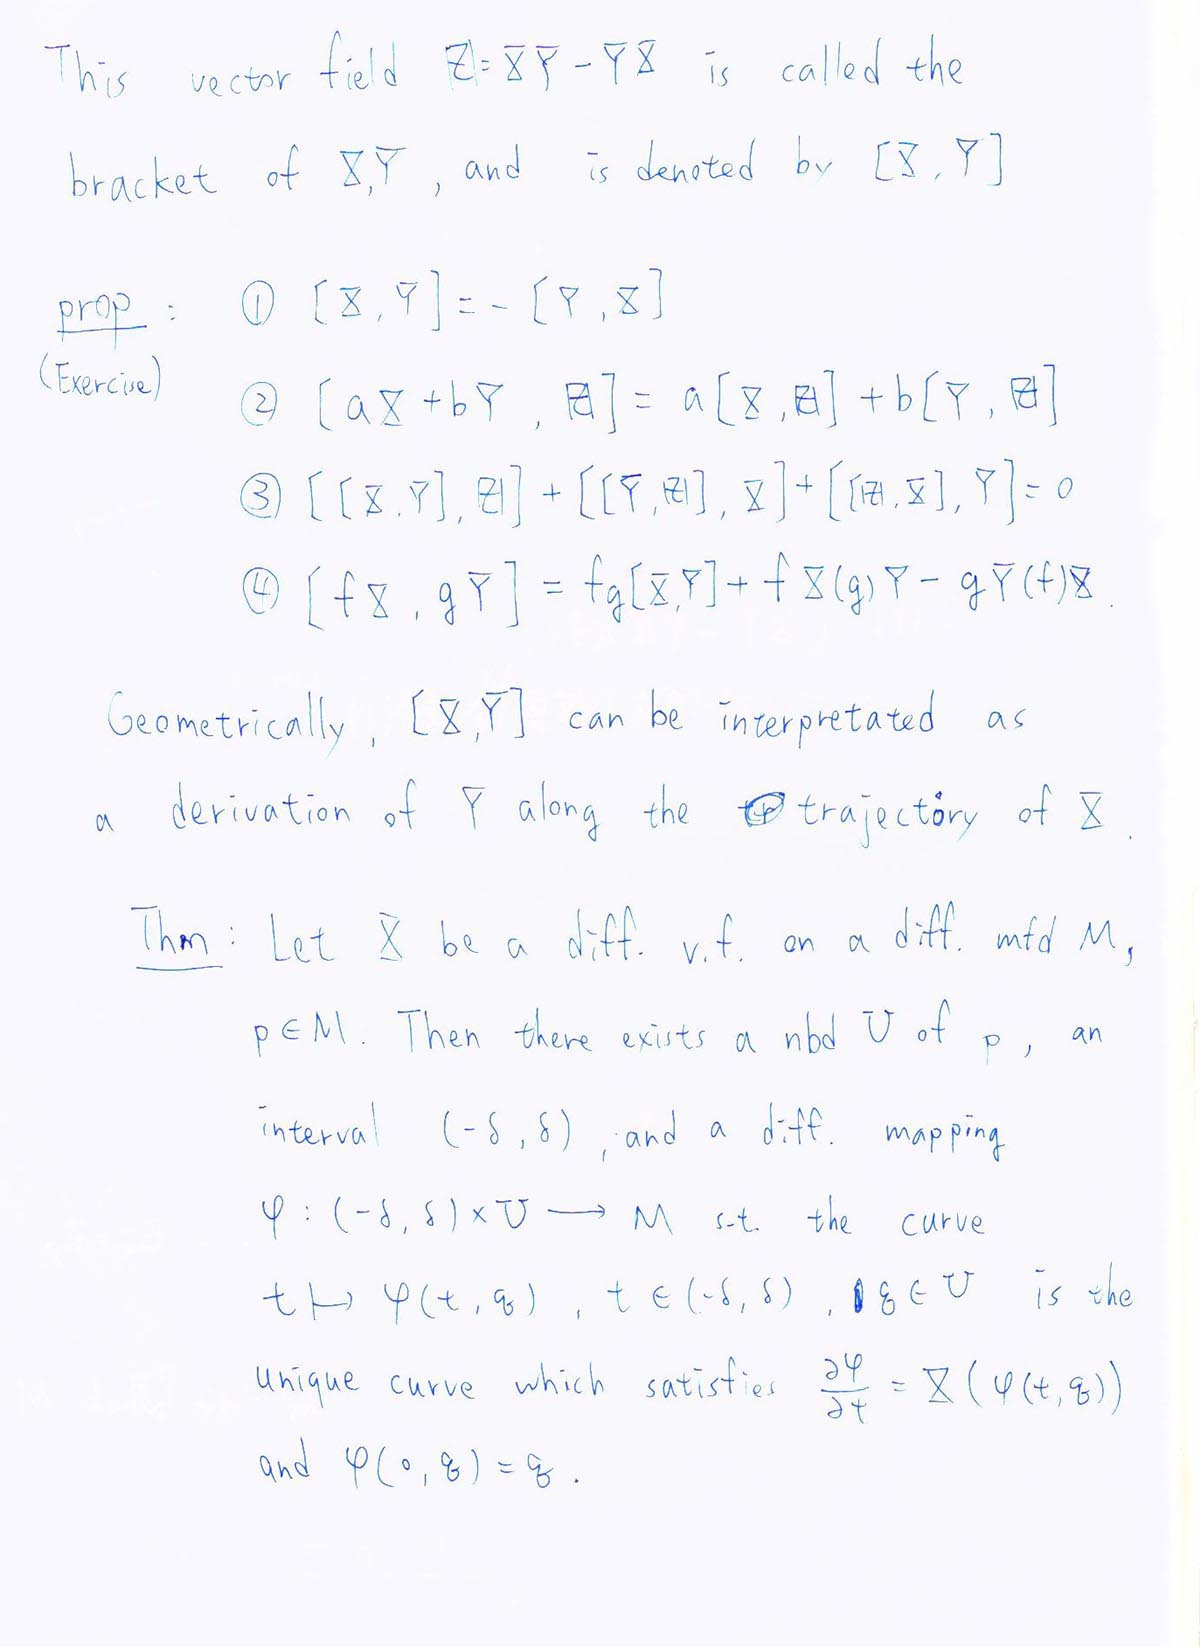 This vector field Z = XY - YX is called the
bracket of X, Y, and is denoted by [X, Y]
prop : ① [X, Y] = - [Y, X]
(Exercise)
② [aX + bY, Z] = a[X, Z] + b[Y, Z]
③ [[X, Y], Z] + [[Y, Z], X] + [[Z, X], Y] = 0
④ [fX, gY] = fg[X, Y] + f X(g) Y - g Y(f) X.
Geometrically, [X, Y] can be interpretated as
a derivation of Y along the trajectory of X.
Thm : Let X be a diff. v.f. on a diff. mfd M,
p ∈ M. Then there exists a nbd U of p, an
interval (-δ, δ), and a diff. mapping
φ : (-δ, δ) × U ⟶ M s.t. the curve
t ↦ φ(t, q), t ∈ (-δ, δ), q ∈ U is the
unique curve which satisfies ∂φ/∂t = X(φ(t, q))
and φ(0, q) = q.